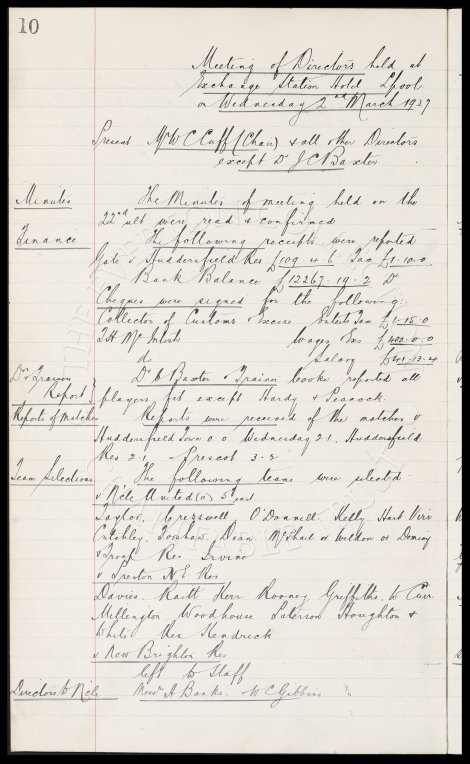 10
Meeting of Directors held at
Exchange Station Hotel L'pool
on Wednesday 2nd March 1927
Present Mr W C Cuff (Chair) & all other Directors
except Dr J C Baxter
Minutes The Minutes of meeting held on the
22nd ult were read & confirmed
Finance The following receipts were reported
Gate v Huddersfield Res £109. 4. 6 Tax £1. 10. 0
Bank Balance £12267. 19. 2 D
Cheques were signed for the following:
Collector of Customs & Excise Entertts Tax £1. 15. 0
T H McIntosh Wages, Exs £400. 0. 0
do Salary £41. 13. 4
Dr & Trainers Report Dr Baxter & Trainer Cooke reported all
players fit except Hardy & Peacock
Reports of Matches Reports were received of the matches v
Huddersfield Town 0 0 Wednesday 2 1, Huddersfield
Res 2. 1 Prescot 3. 2
Team Selections The following teams were selected
v N'cle United (a) 5th inst
Taylor, Cresswell O'Donnell Kelly Hart Virr
Critchley, Forshaw, Dean McPhail or Weldon or Dominy
& Troup Res Irvine
v Preston N.E. Res
Davies. Raitt Kerr Rooney Griffiths. W Curr
Millington Woodhouse. Houghton &
White Res Kendrick
v New Brighton Res
left to Staff
Directors to N'cle Messrs A Banks. & W C Gibbins